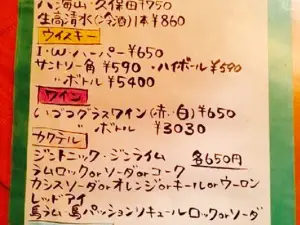 八海山・久保田 ¥750
生高清水(冷酒)1本 ¥860
ウイスキー
I・W・ハーパー ¥650
サントリー角 ¥590・ハイボール ¥590
〃 ボトル ¥5400
ワイン
いづつグラスワイン(赤、白) ¥650
〃 ボトル ¥3030
カクテル
ジントニック・ジンライム 各650円
ラムロックorソーダorコーク
カシスソーダorオレンジorキールorウーロン
レッドアイ
島ラム 島パッションリキュールロックorソーダ